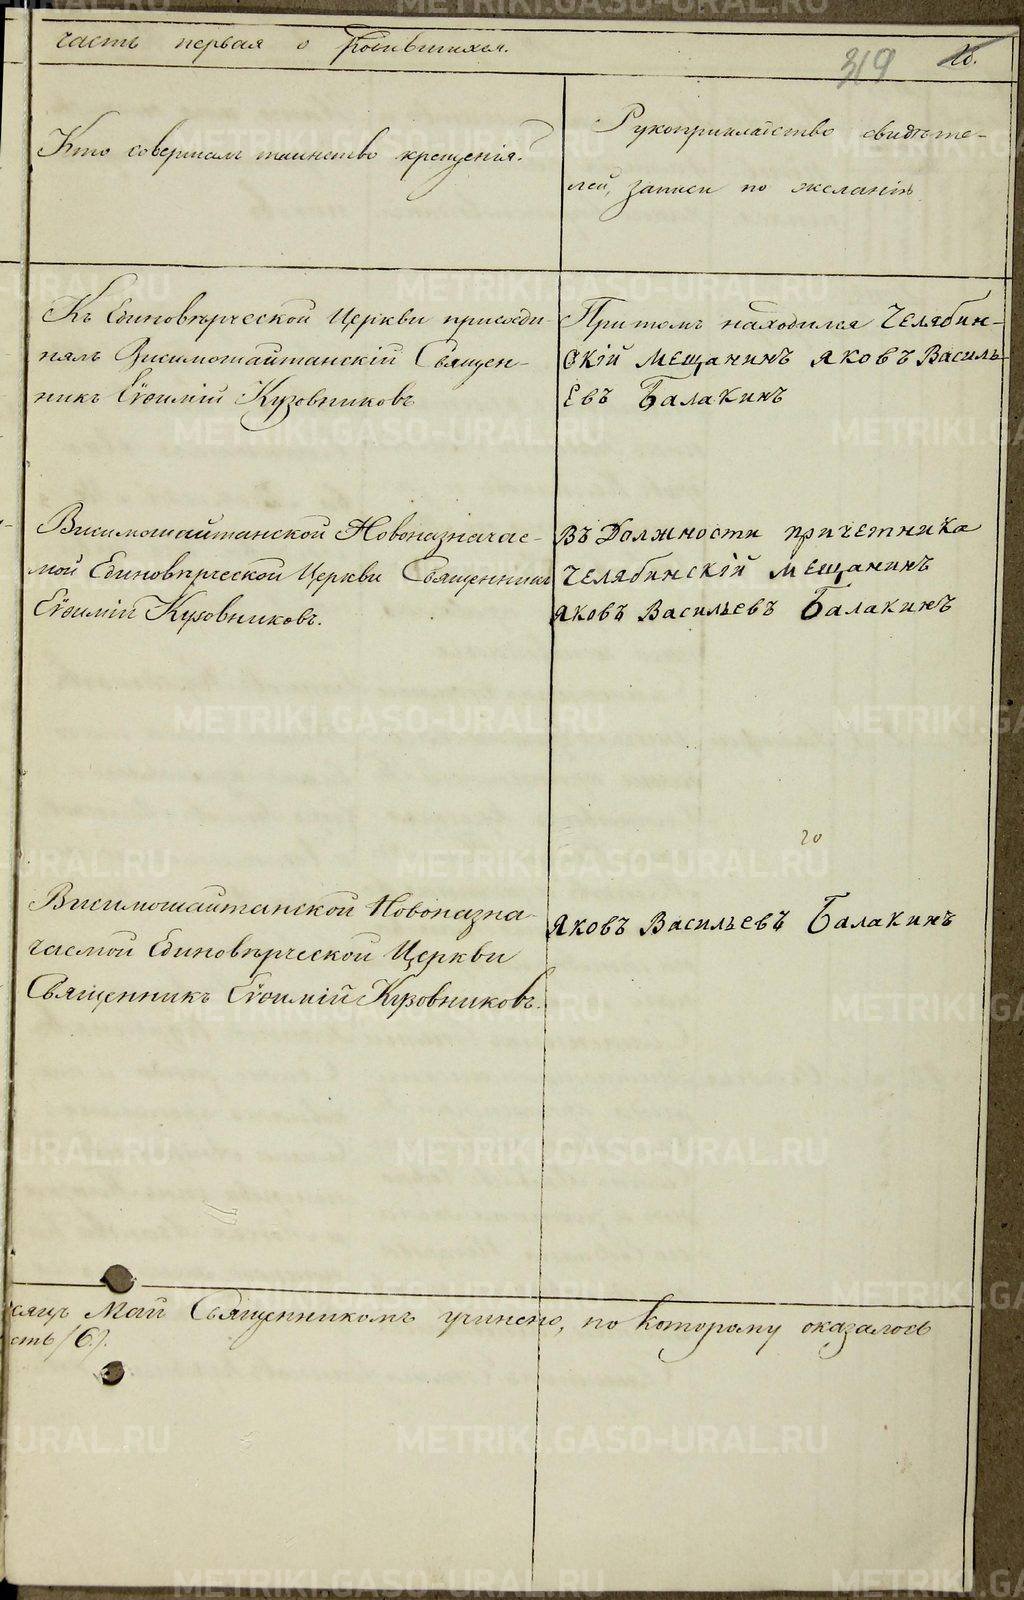 часть первая о родившихся.
319
18.
Кто совершалъ таинство крещенія?
Рукоприкладство свидѣте-
лей, записи по желанію
Къ Единовѣрческой Церкви присоеди-
нялъ Висимошайтанскій Священ-
никъ Евѳимій Кузовниковъ
Притомъ находился Челябин-
скій мещанинъ Яковъ Василь-
евъ Балакинъ
Висимошайтанской Новоназначае-
мой Единовѣрческой Церкви Священникъ
Евѳимій Кузовниковъ.
Въ Должности причетника
Челябинскій мещанинъ
Яковъ Васильевъ Балакинъ
го
Висимошайтанской Новоназна-
чаемой Единовѣрческой Церкви
Священникъ Евѳимій Кузовниковъ.
Яковъ Васильевъ Балакинъ
сяцъ Май Священникомъ учинено, по которому оказалось
сть /6/.
METRIKI.GASO-URAL.RU